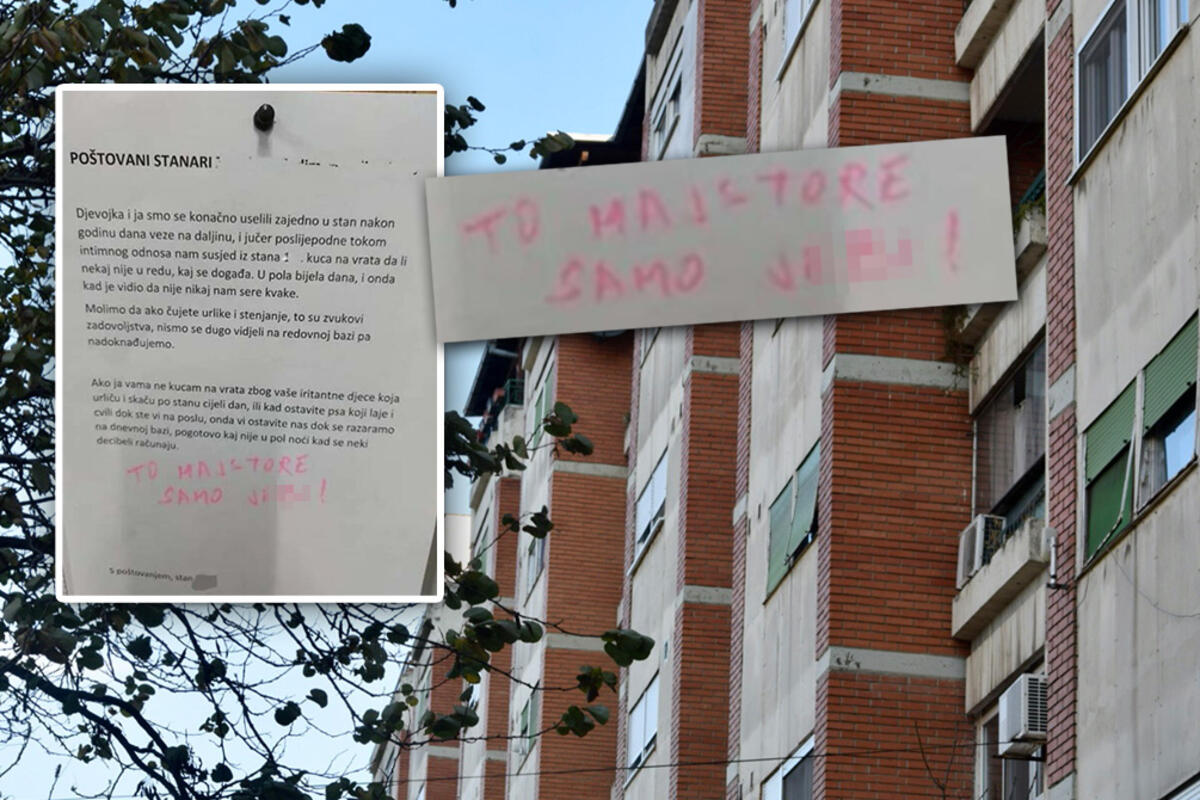 POŠTOVANI STANARI
Djevojka i ja smo se konačno uselili zajedno u stan nakon
godinu dana veze na daljinu, i jučer poslijepodne tokom
intimnog odnosa nam susjed iz stana . kuca na vrata da li
nekaj nije u redu, kaj se događa. U pola bijela dana, i onda
kad je vidio da nije nikaj nam sere kvake.
Molimo da ako čujete urlike i stenjanje, to su zvukovi
zadovoljstva, nismo se dugo vidjeli na redovnoj bazi pa
nadoknađujemo.
Ako ja vama ne kucam na vrata zbog vaše iritantne djece koja
urliču i skaču po stanu cijeli dan, ili kad ostavite psa koji laje i
cvili dok ste vi na poslu, onda vi ostavite nas dok se razaramo
na dnevnoj bazi, pogotovo kaj nije u pol noći kad se neki
decibeli računaju.
TO MAJSTORE
SAMO J !
S poštovanjem, stan
TO MAJSTORE
SAMO J !